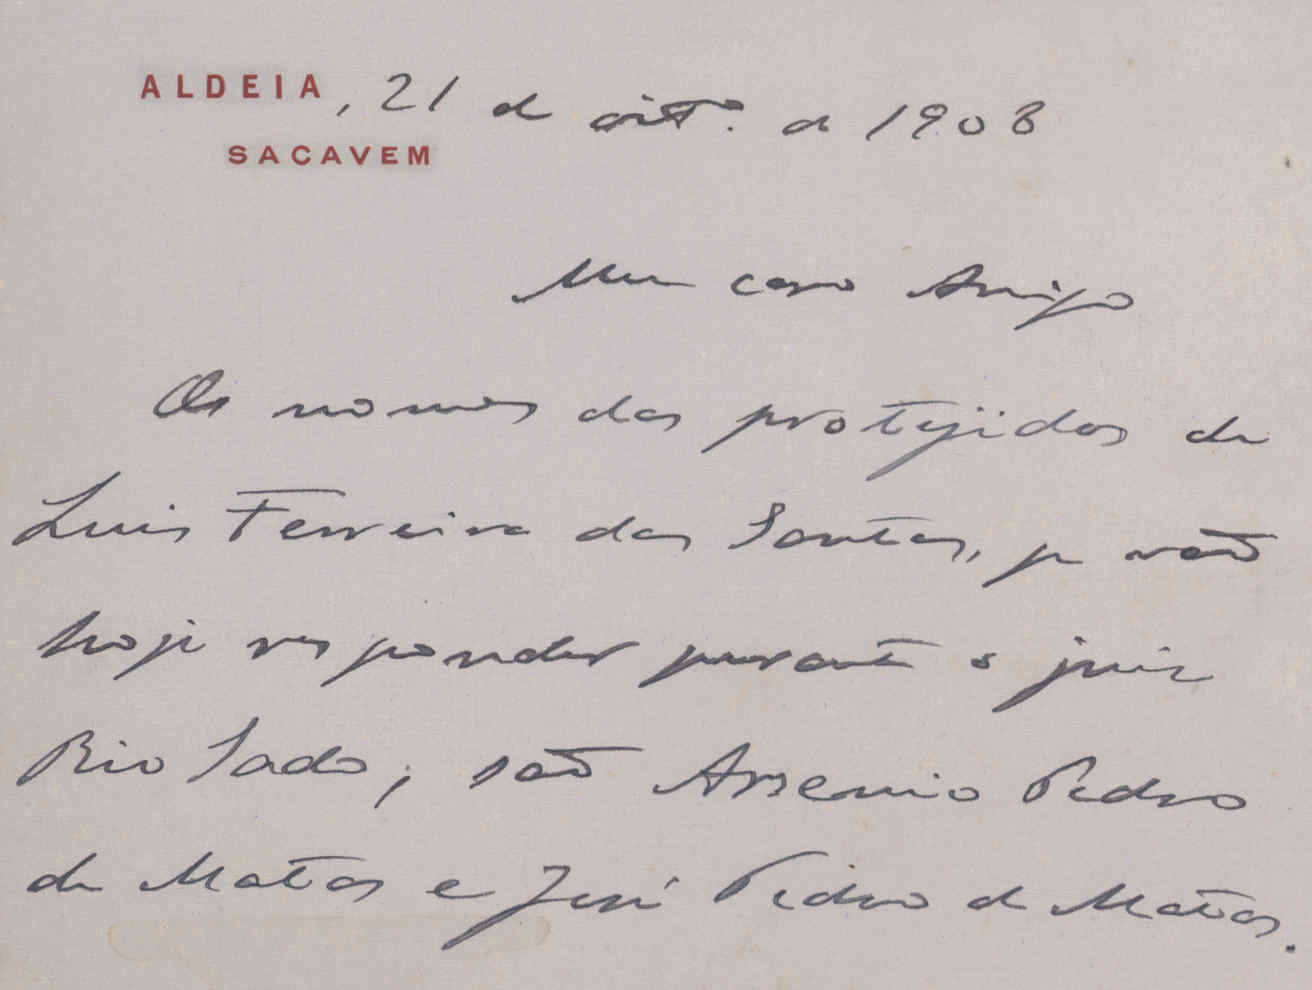 ALDEIA, 21 de out.º de 1908
SACAVEM
Meu caro Amigo
Os nomes dos protejidos de
Luis Ferreira dos Santos, q vão
hoje responder perante o juiz
Rio Sado, são Arsenio Pedro
de Matos e José Pedro de Matos.